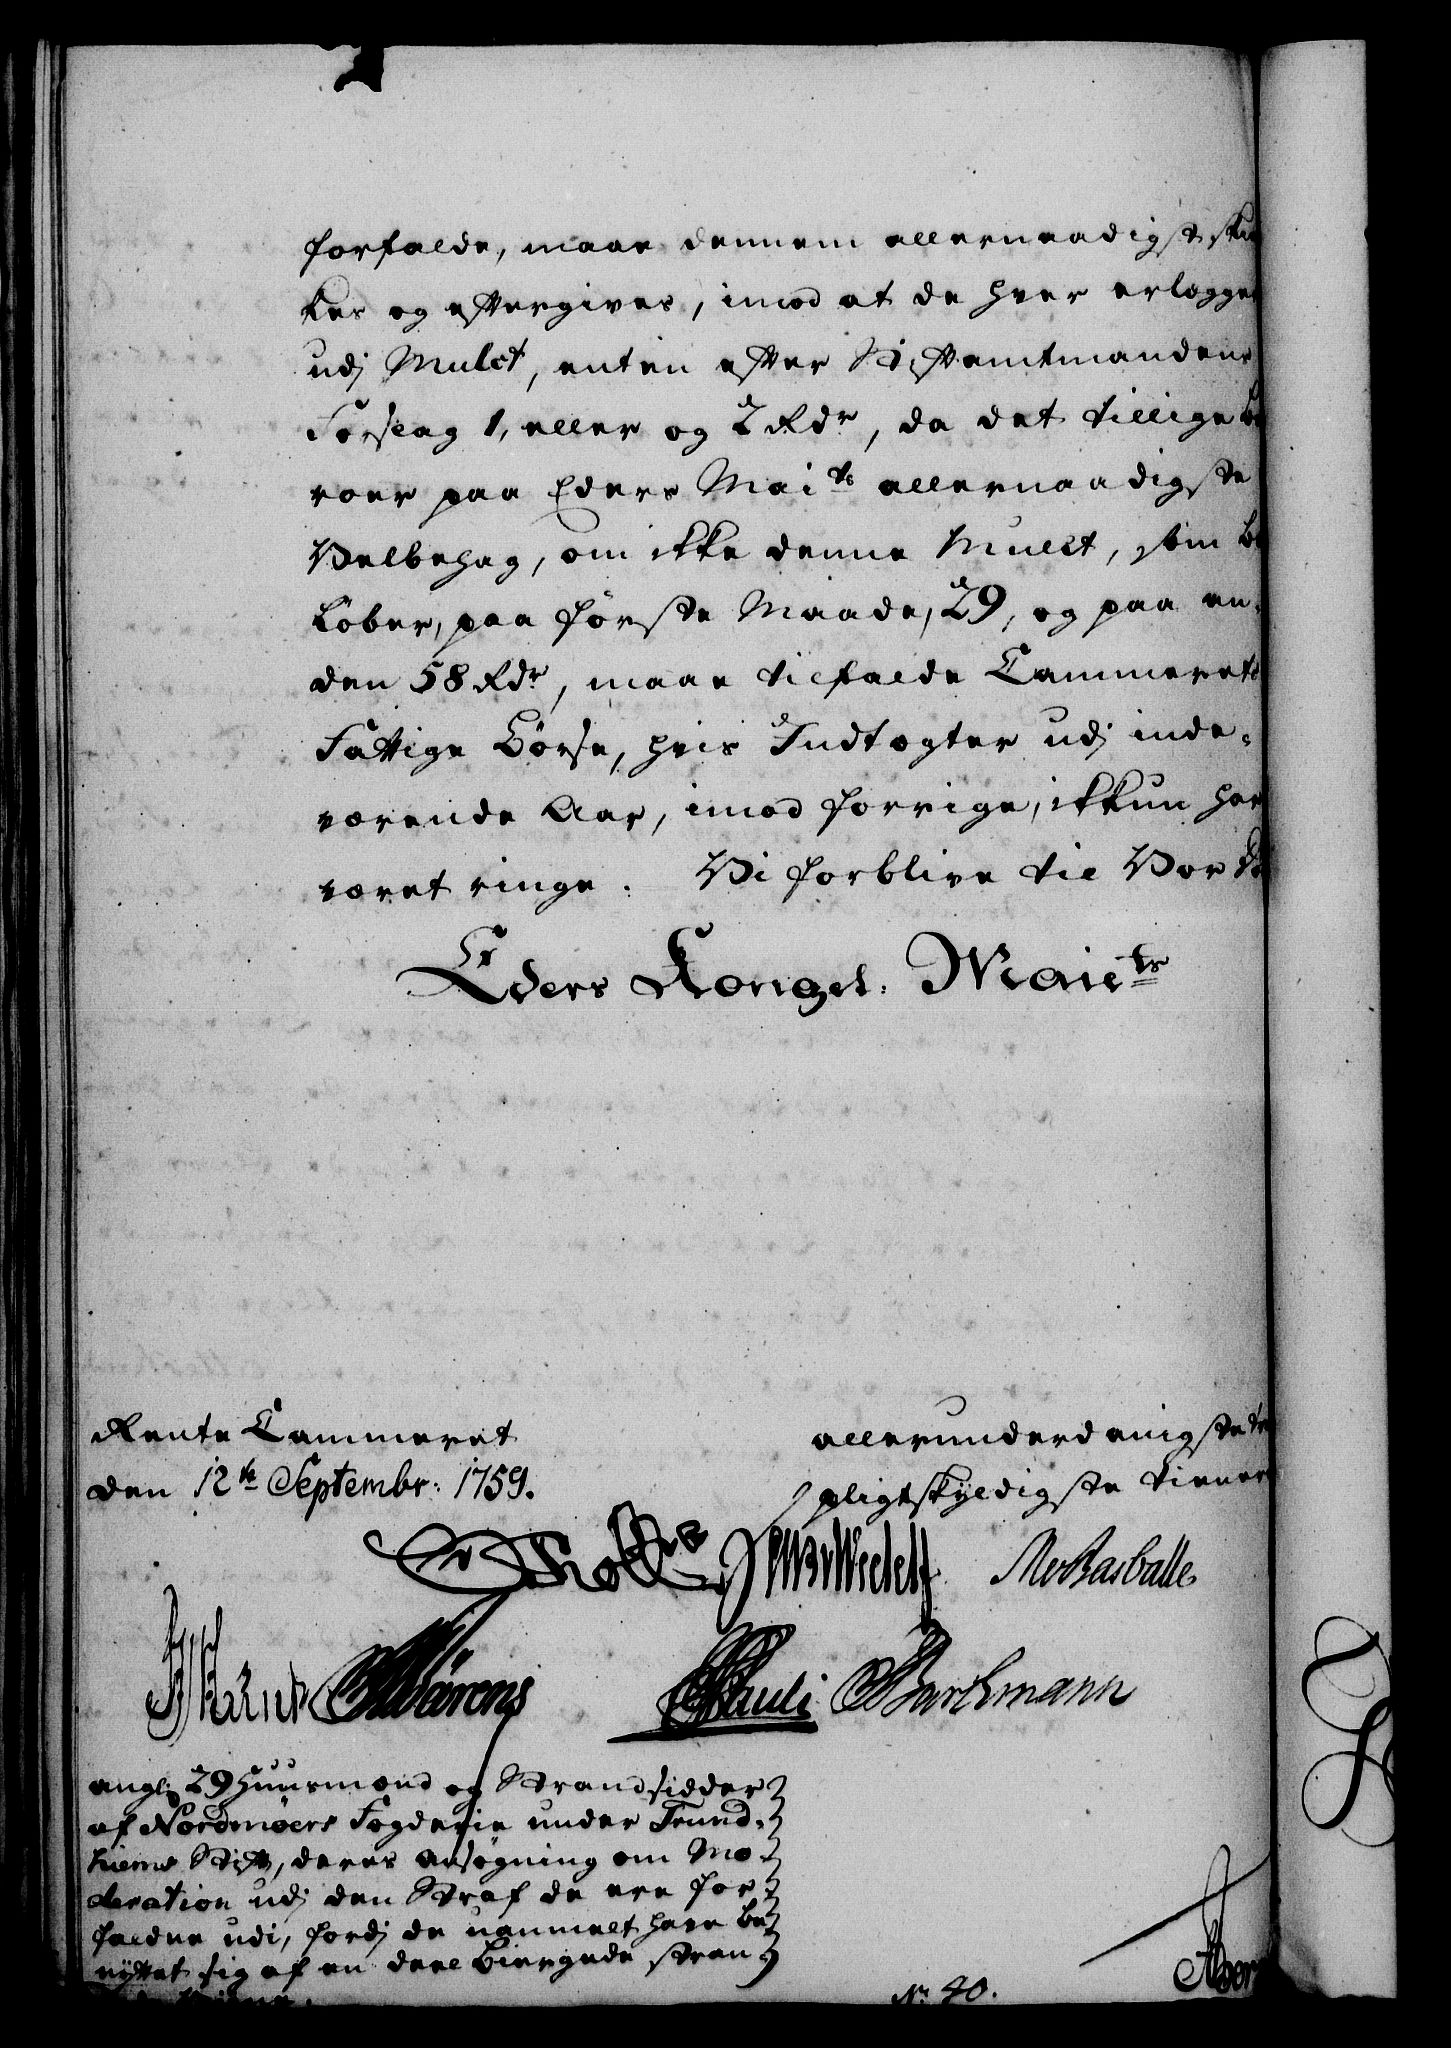 forfalde, maae dennem allernaadigst skiæn
kes og eftergives, imod at de hver erlægger
udj Mulct, enten efter Stiftamtmandens
Forslag 1, eller og 2 Rdr, da det tillige be
roer paa Eders Maits allernaadigste
Velbehag, om ikke denne Mulct, som be
løber, paa første Maade, 29, og paa an-
den 58 Rdr, maae tilfalde Cammerets
Fattige Børse, hvis Indtægter udj inde-
værende Aar, imod forrige, ikkun har
været ringe. Vi forblive til Vor
Eders Kongel. Maits
Rente Cammeret
den 12te Septembr: 1759.
allerunderdanigste
pligtskyldigste tienere
Pauli Barchmann
angl: 29 Huusmænd og Strandsidder
af Nordmøers Fogderie under Trund-
hiems Stift, deres Ansøgning om Mo-
deration udj den Straf de ere for-
faldne udi, fordj de uanmelt have be-
nyttet sig af en deel biergede stran-
No 40.